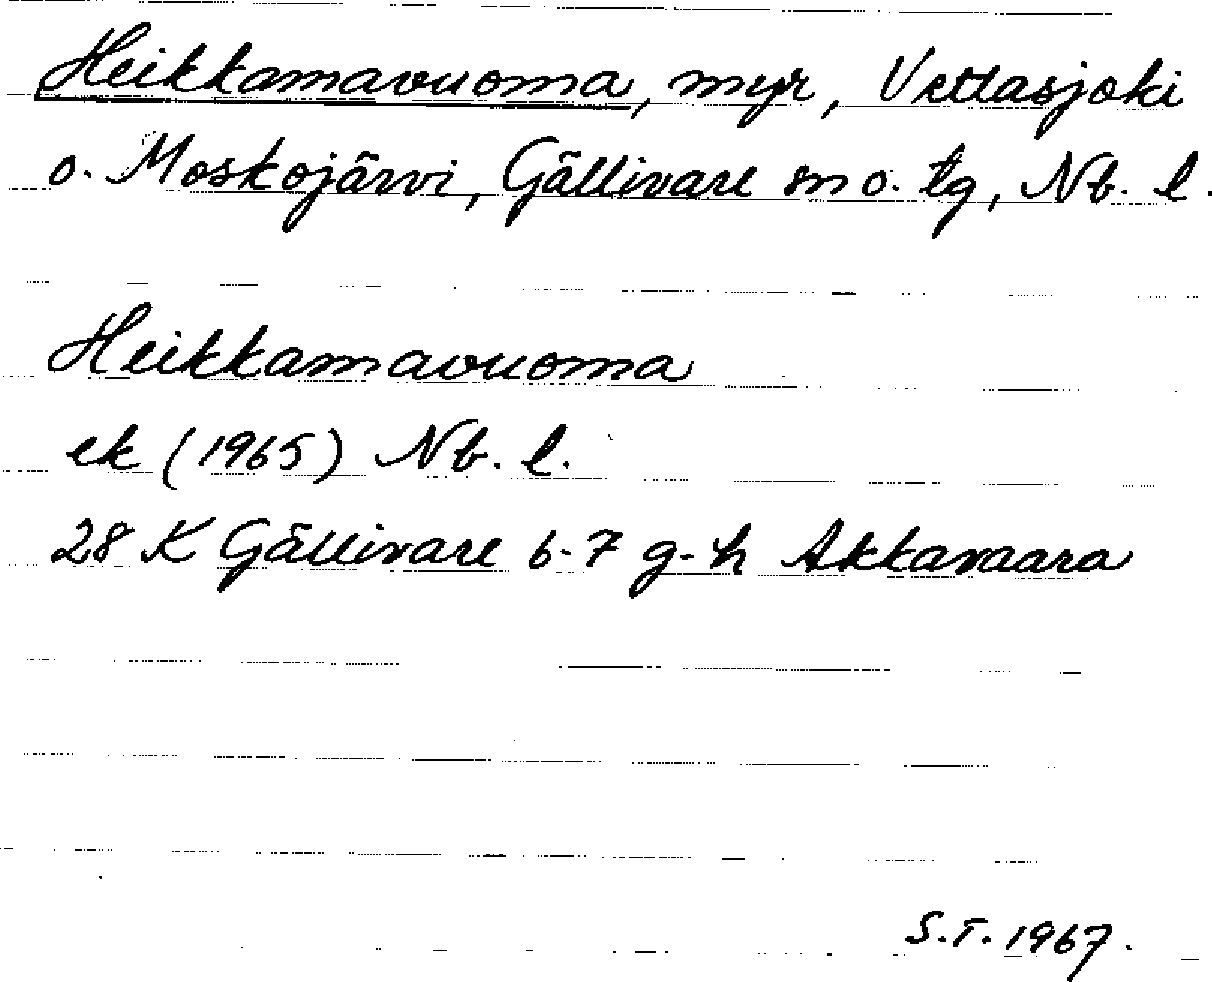 Heikkamavuoma, myr, Vettasjoki
o. Moskojärvi, Gällivare sn o. tg, Nb. l.
Heikkamavuoma
ek (1965) Nb. l.
28 K Gällivare 6-7 g-h Akkavaara
S.T. 1967.